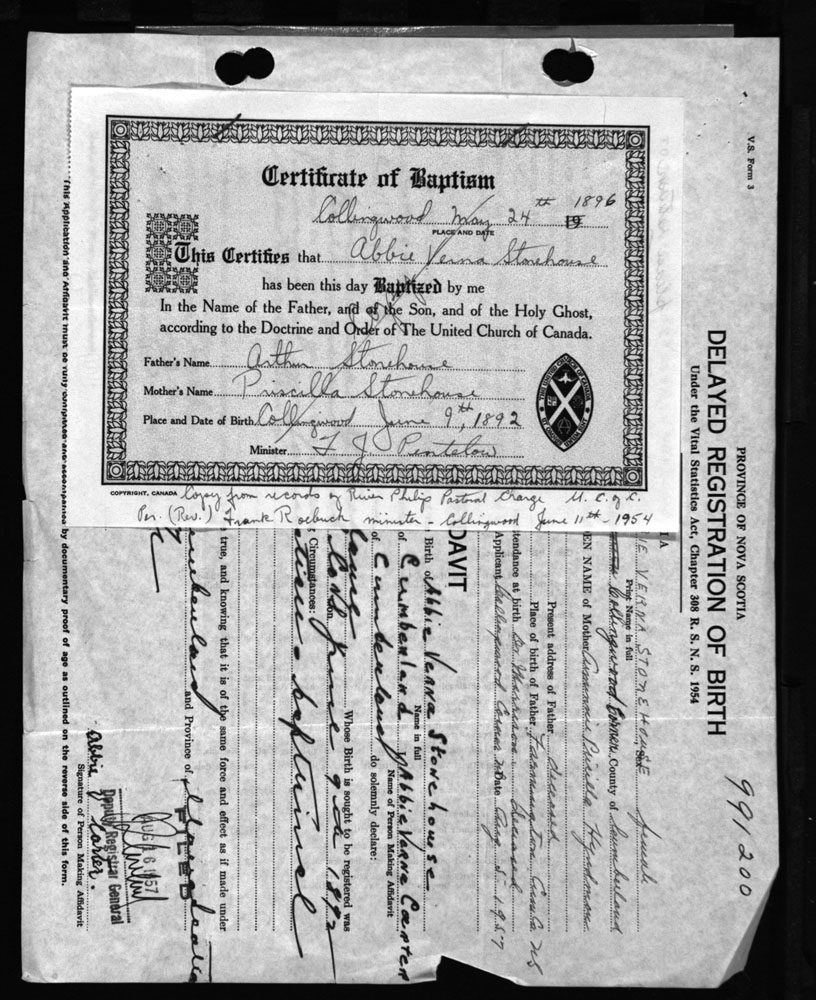 Certificate of Baptism
Collingwood May 24th 1896
PLACE AND DATE
19
This Certifies that Abbie Verna Stonehouse
has been this day Baptized by me
In the Name of the Father, and of the Son, and of the Holy Ghost,
according to the Doctrine and Order of The United Church of Canada.
Father's Name Arthur Stonehouse
Mother's Name Priscilla Stonehouse
Place and Date of Birth Collingwood June 9th, 1892
Minister F J Pentelow
COPYRIGHT, CANADA
Copy from records of River Philip Pastoral Charge U. C. of C.
Per. (Rev.) Frank Roebuck minister - Collingwood June 11th - 1954
V.S. Form 3
991200
PROVINCE OF NOVA SCOTIA
DELAYED REGISTRATION OF BIRTH
Under the Vital Statistics Act, Chapter 308 R. S. N. S. 1954
IE VERNA STONEHOUSE female
Print Name in full
Collingwood Corner County of Cumberland
EN NAME of Mother Priscilla
Present address of Father deceased
Place of birth of Father Cumb. Co NS
tendance at birth Dr. deceased
Applicant Collingwood Corner NS Date Aug 5 - 1957
DAVIT
Birth of Abbie Verna Stonehouse
Name in full
of Cumberland Abbie Verna Carter
Name of Person Making Affidavit
of Cumberland do solemnly declare:
Whose Birth is sought to be registered was
on June 9th 1892
g Circumstances:
baptismal
true, and knowing that it is of the same force and effect as if made under
umberland and Province of Nova Scotia
FILED
AUG 16 1957
Deputy Registrar General
Abbie V Carter.
Signature of Person Making Affidavit
This Application and Affidavit must be fully completed and accompanied by documentary proof of age as outlined on the reverse side of this form.